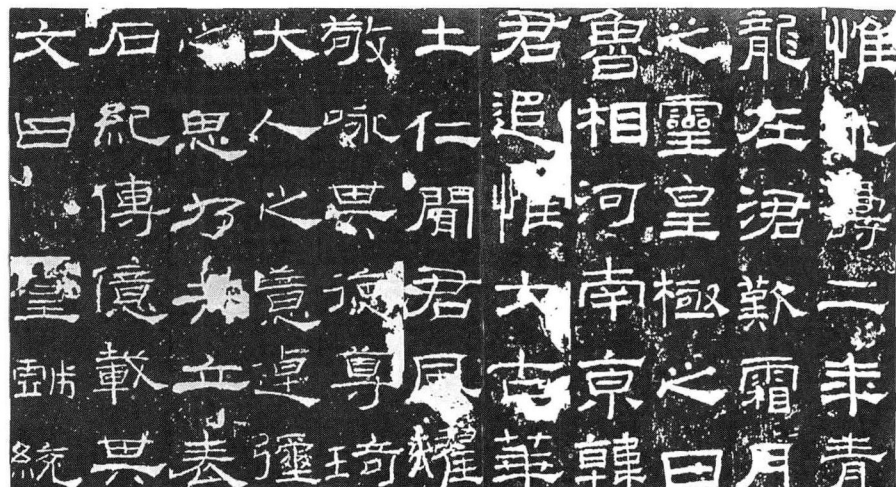 惟永壽二年青
龍在涒歎霜月
之靈皇極之日
魯相河南京韓
君追惟大古華
土仁聞君風燿
敬咏其德尊琦
大人之意逴彌
之思乃共立表
石紀傳億載其
文曰皇戲統